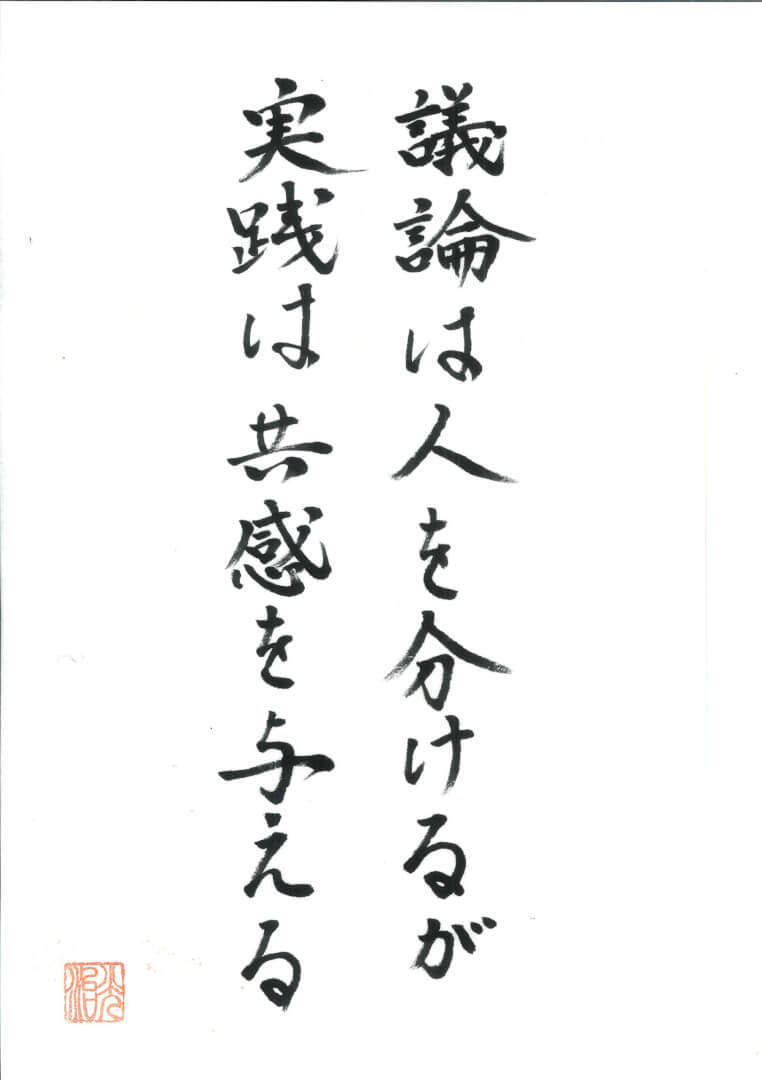 議論は人を分けるが
実践は共感を与える